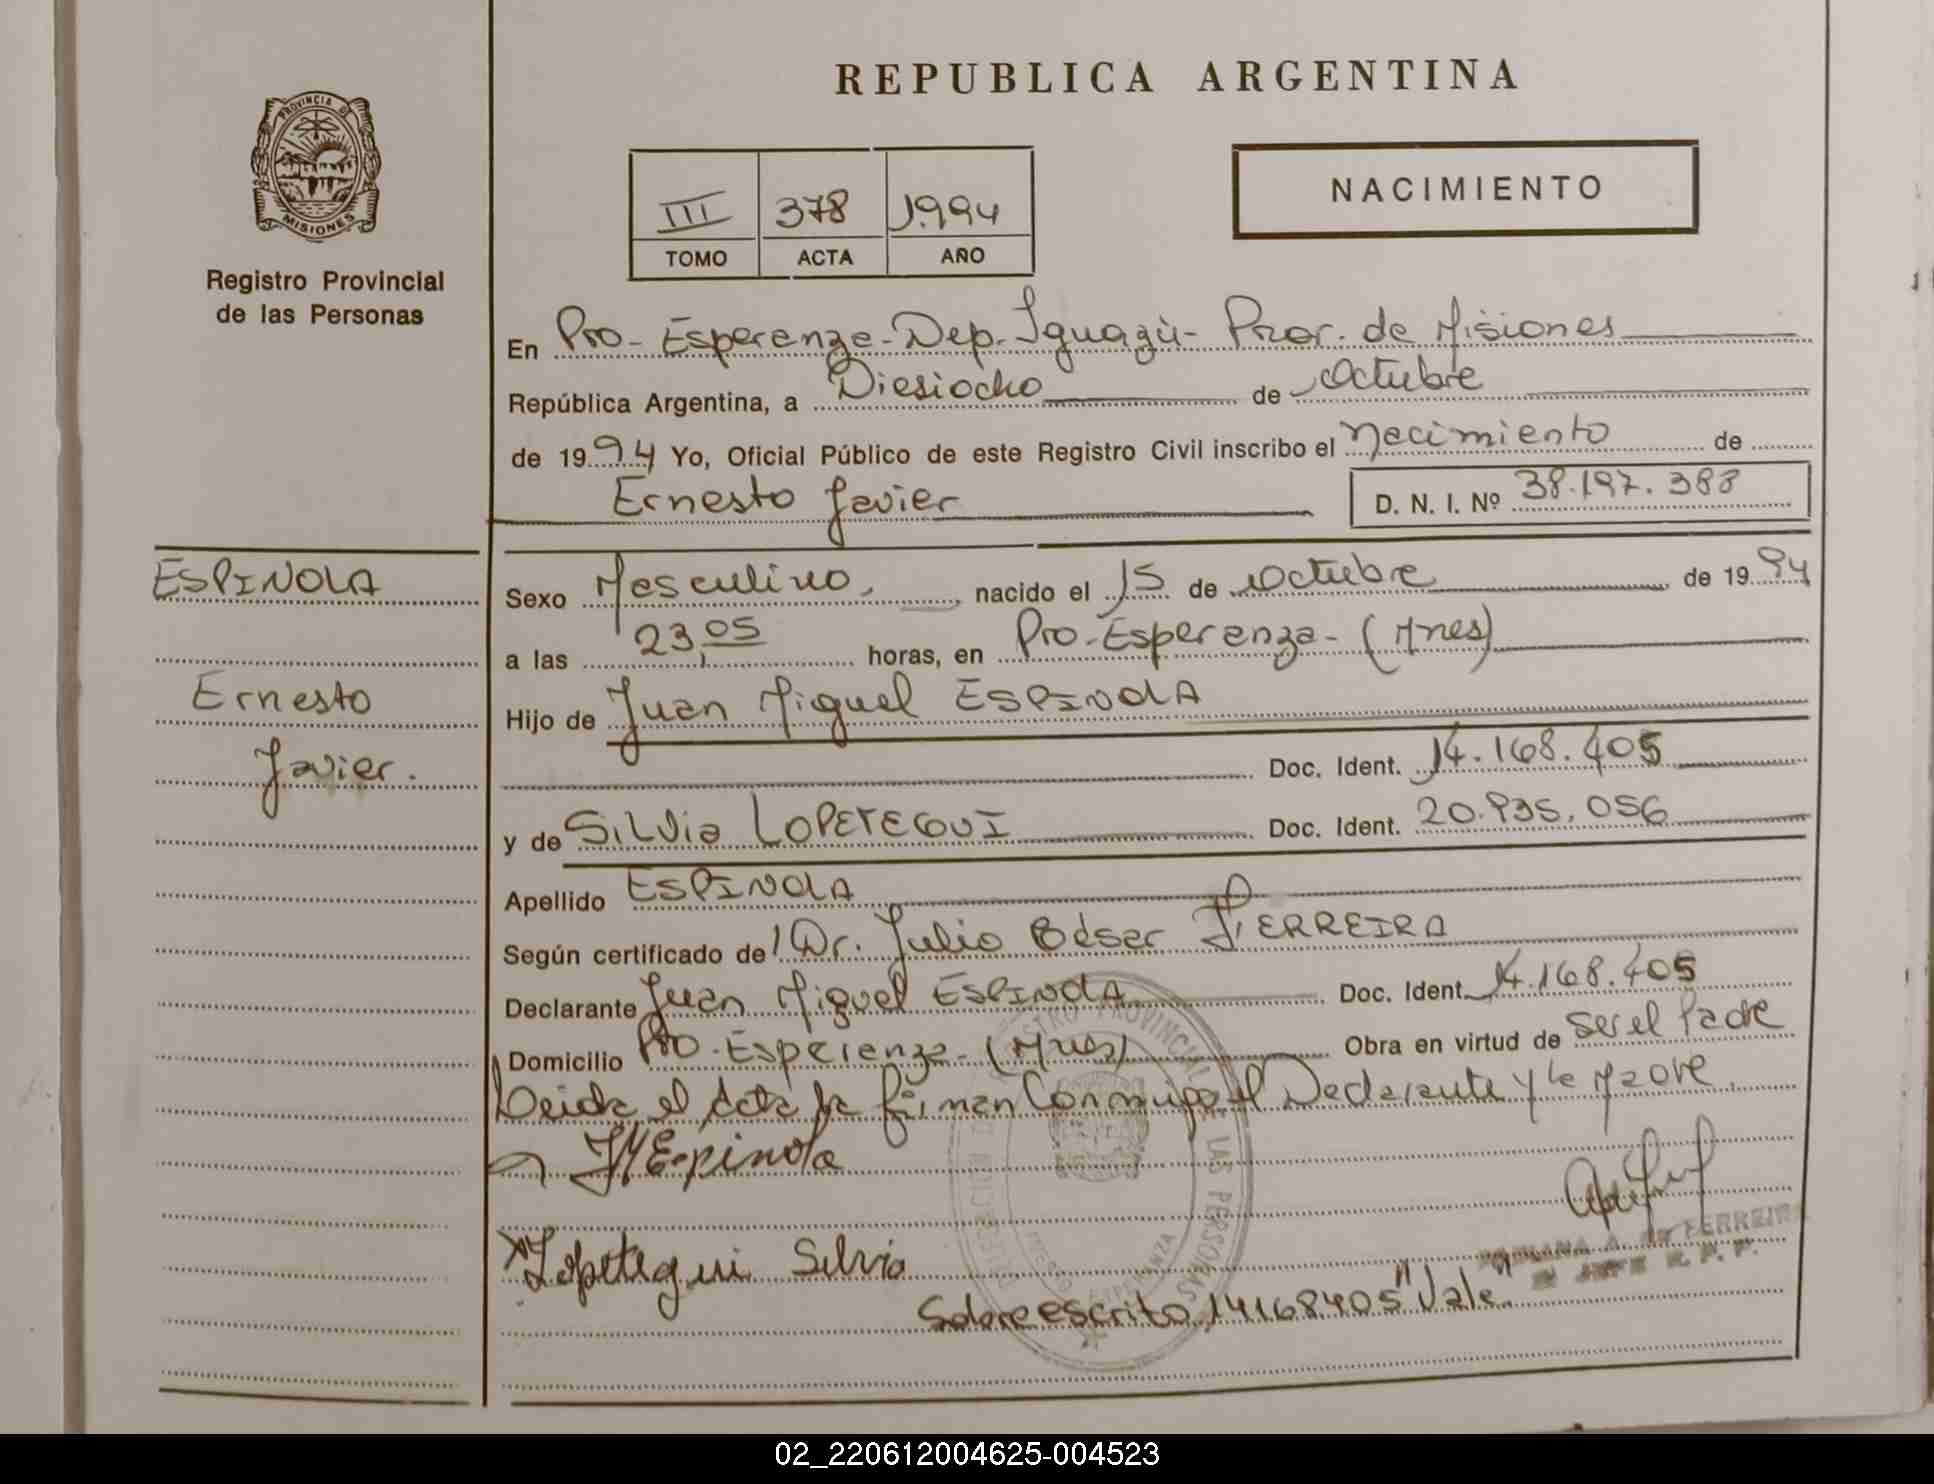 REPUBLICA ARGENTINA
PROVINCIA DE
MISIONES
Registro Provincial
de las Personas
III 378 1.994
TOMO ACTA AÑO
NACIMIENTO
En Pto - Esperanza - Dep. Iguazú - Prov. de Misiones
República Argentina, a Diesiocho de Octubre
de 1994 Yo, Oficial Público de este Registro Civil inscribo el nacimiento de
Ernesto Javier
D. N. I. Nº 38.197.388
ESPINOLA
Ernesto
Javier.
Sexo Masculino, nacido el 15 de Octubre de 1994
a las 23,05 horas, en Pto - Esperanza - (Mnes)
Hijo de Juan Miguel ESPINOLA
Doc. Ident. 14.168.405
y de SILVia LOPETEGUI Doc. Ident. 20.935.056
Apellido ESPINOLA
Según certificado del Dr. Julio César FERREIRA
Declarante Juan Miguel ESPINOLA Doc. Ident. 14.168.405
Domicilio Pto - Esperanza - (Mnes) Obra en virtud de ser el Padre
Leida el Acta la firman Conmigo el Declarante y la Madre.
JMEspinola
Lopetegui Silvia
FERREIRA
Sobreescrito 14168405 "Vale"
REGISTRO PROVINCIAL DE LAS PERSONAS
02_220612004625-004523